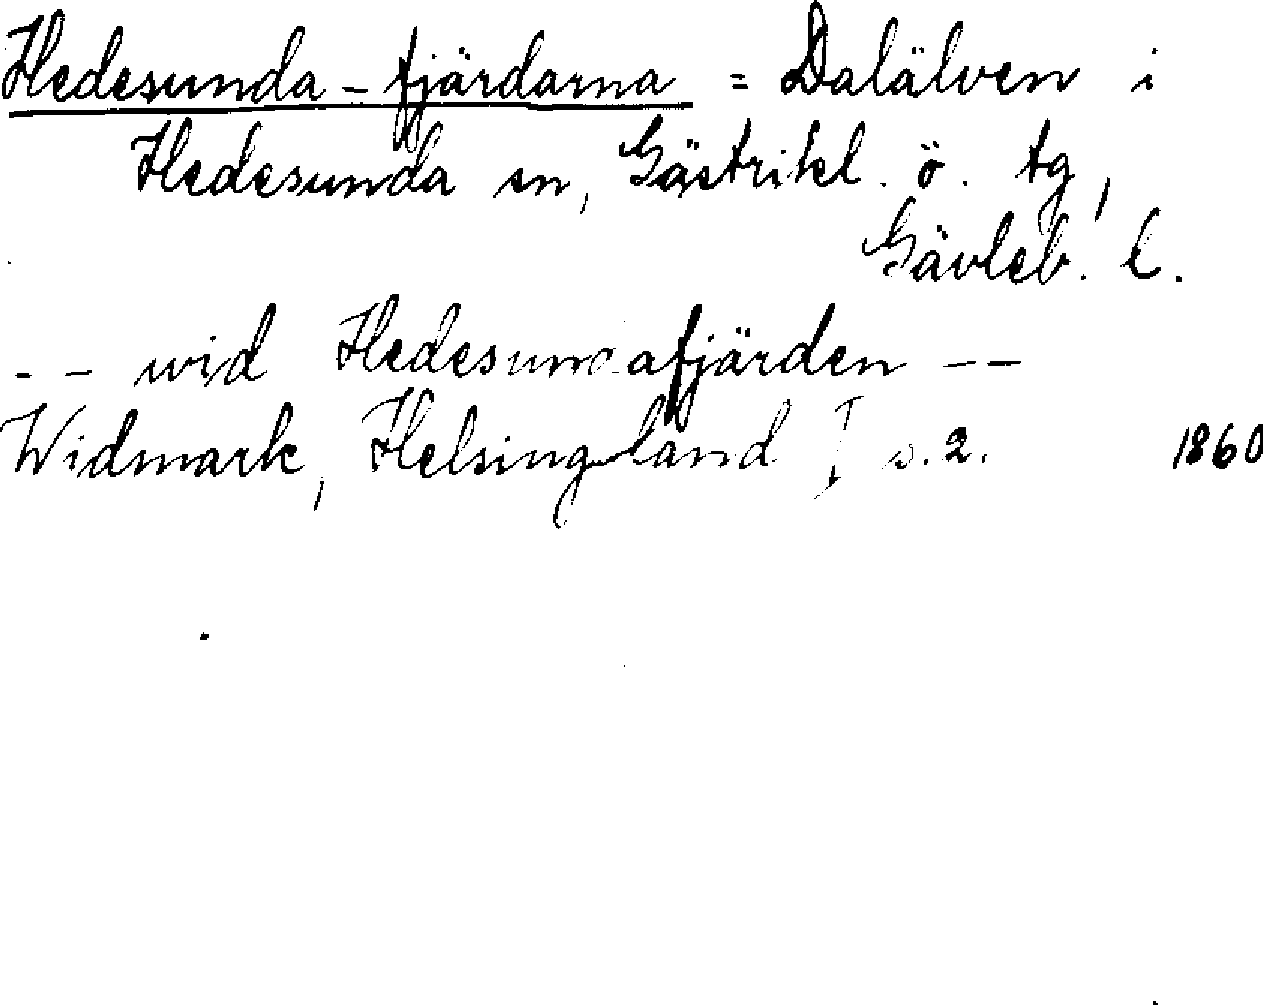 Hedesunda-fjärdarna = Dalälven i
Hedesunda sn, Gästrikl. ö. tg,
Gävleb. l.
-- wid Hedesundafjärden --
Widmark, Helsingland I s. 2. 1860